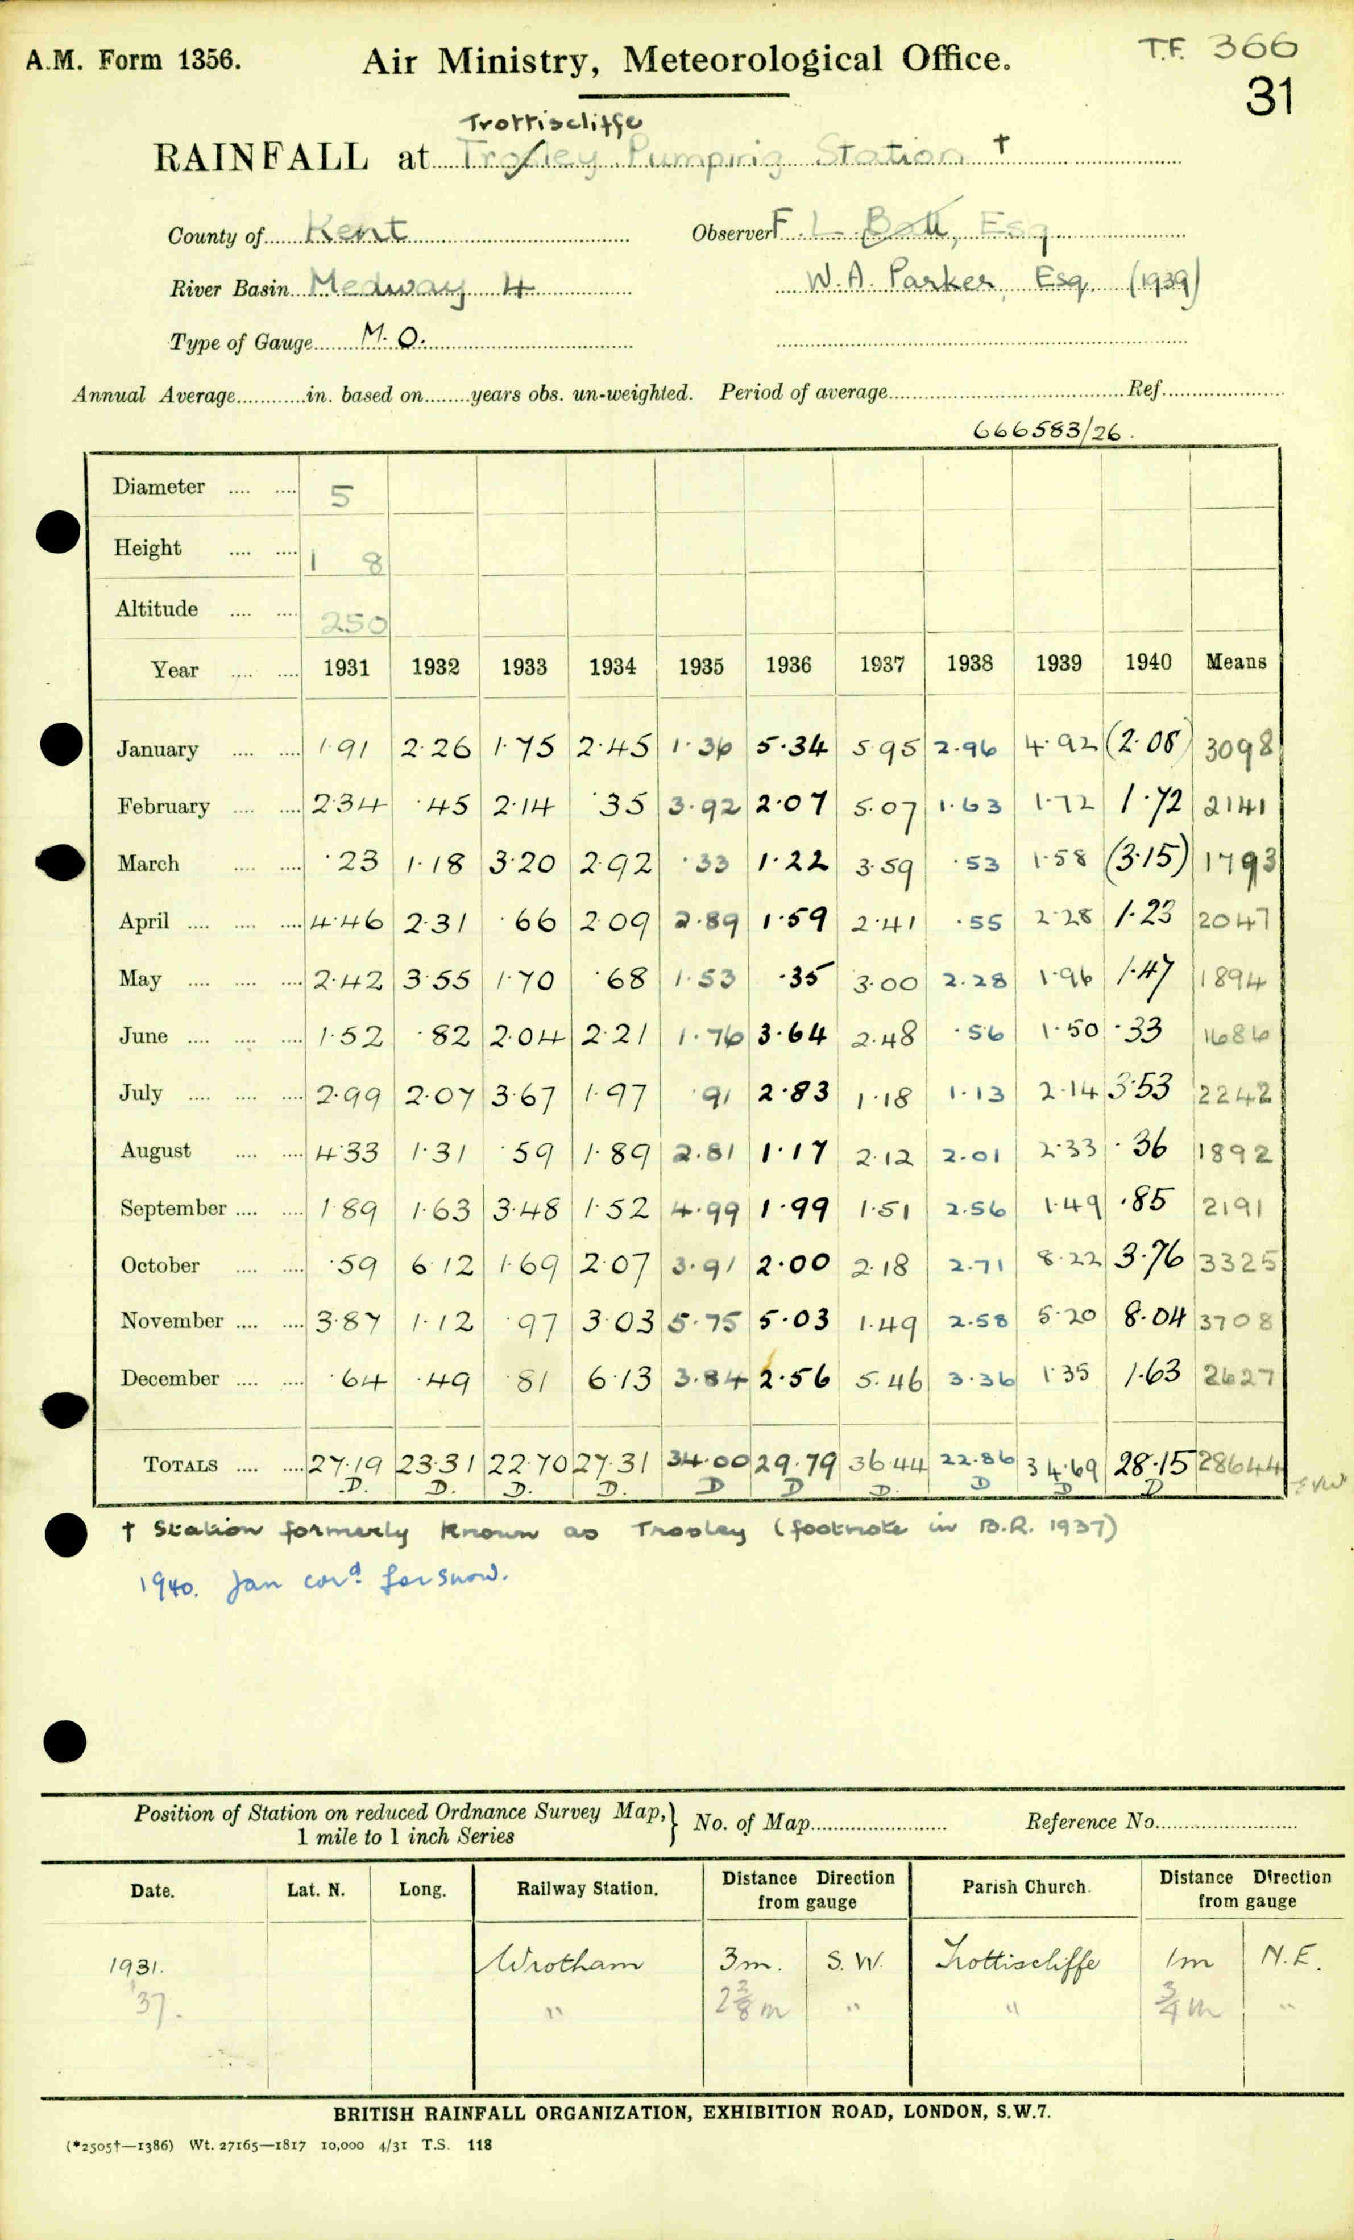 A.M. Form 1356.
Air Ministry, Meteorological Office.
T.F. 366
31
Trottiscliffe
RAINFALL at Trosley Pumping Station †
County of Kent
Observer F. L. Ball, Esq
River Basin Medway 4
W. A. Parker, Esq. (1939)
Type of Gauge M.O.
Annual Average............in. based on........years obs. un-weighted. Period of average........................................Ref.....................
666583/26.
Diameter .... .... 5
Height .... .... 1 8
Altitude .... .... 250
Year .... .... 1931 1932 1933 1934 1935 1936 1937 1938 1939 1940 Means
January .... .... 1·91 2·26 1·75 2·45 1·36 5·34 5·95 2·96 4·92 (2·08) 3098
February .... .... 2·34 ·45 2·14 ·35 3·92 2·07 5·07 1·63 1·72 1·72 2141
March .... .... ·23 1·18 3·20 2·92 ·33 1·22 3·59 ·53 1·58 (3·15) 1793
April .... .... .... 4·46 2·31 ·66 2·09 2·89 1·59 2·41 ·55 2·28 1·23 2047
May .... .... .... 2·42 3·55 1·70 ·68 1·53 ·35 3·00 2·28 1·96 1·47 1894
June .... .... .... 1·52 ·82 2·04 2·21 1·76 3·64 2·48 ·56 1·50 ·33 1686
July .... .... .... 2·99 2·07 3·67 1·97 ·91 2·83 1·18 1·13 2·14 3·53 2242
August .... .... 4·33 1·31 ·59 1·89 2·81 1·17 2·12 2·01 2·33 ·36 1892
September .... .... 1·89 1·63 3·48 1·52 4·99 1·99 1·51 2·56 1·49 ·85 2191
October .... .... ·59 6·12 1·69 2·07 3·91 2·00 2·18 2·71 8·22 3·76 3325
November .... .... 3·87 1·12 ·97 3·03 5·75 5·03 1·49 2·58 5·20 8·04 3708
December .... .... ·64 ·49 ·81 6·13 3·84 2·56 5·46 3·36 1·35 1·63 2627
TOTALS .... .... 27·19 23·31 22·70 27·31 34·00 29·79 36·44 22·86 34·69 28·15 28644
D. D. D. D. D D D. D D D
† Station formerly known as Trosley (footnote in B.R. 1937)
1940. Jan cor<sup>d</sup> for snow.
Position of Station on reduced Ordnance Survey Map,} No. of Map........................ Reference No.........................
1 mile to 1 inch Series
Date. Lat. N. Long. Railway Station. Distance Direction from gauge Parish Church. Distance Direction from gauge
1931. Wrotham 3m. S.W. Trottiscliffe 1m N.E.
'37. " 2 3/8 m " " 3/4 m "
BRITISH RAINFALL ORGANIZATION, EXHIBITION ROAD, LONDON, S.W.7.
(*2505†—1386) Wt. 27165—1817 10,000 4/31 T.S. 118